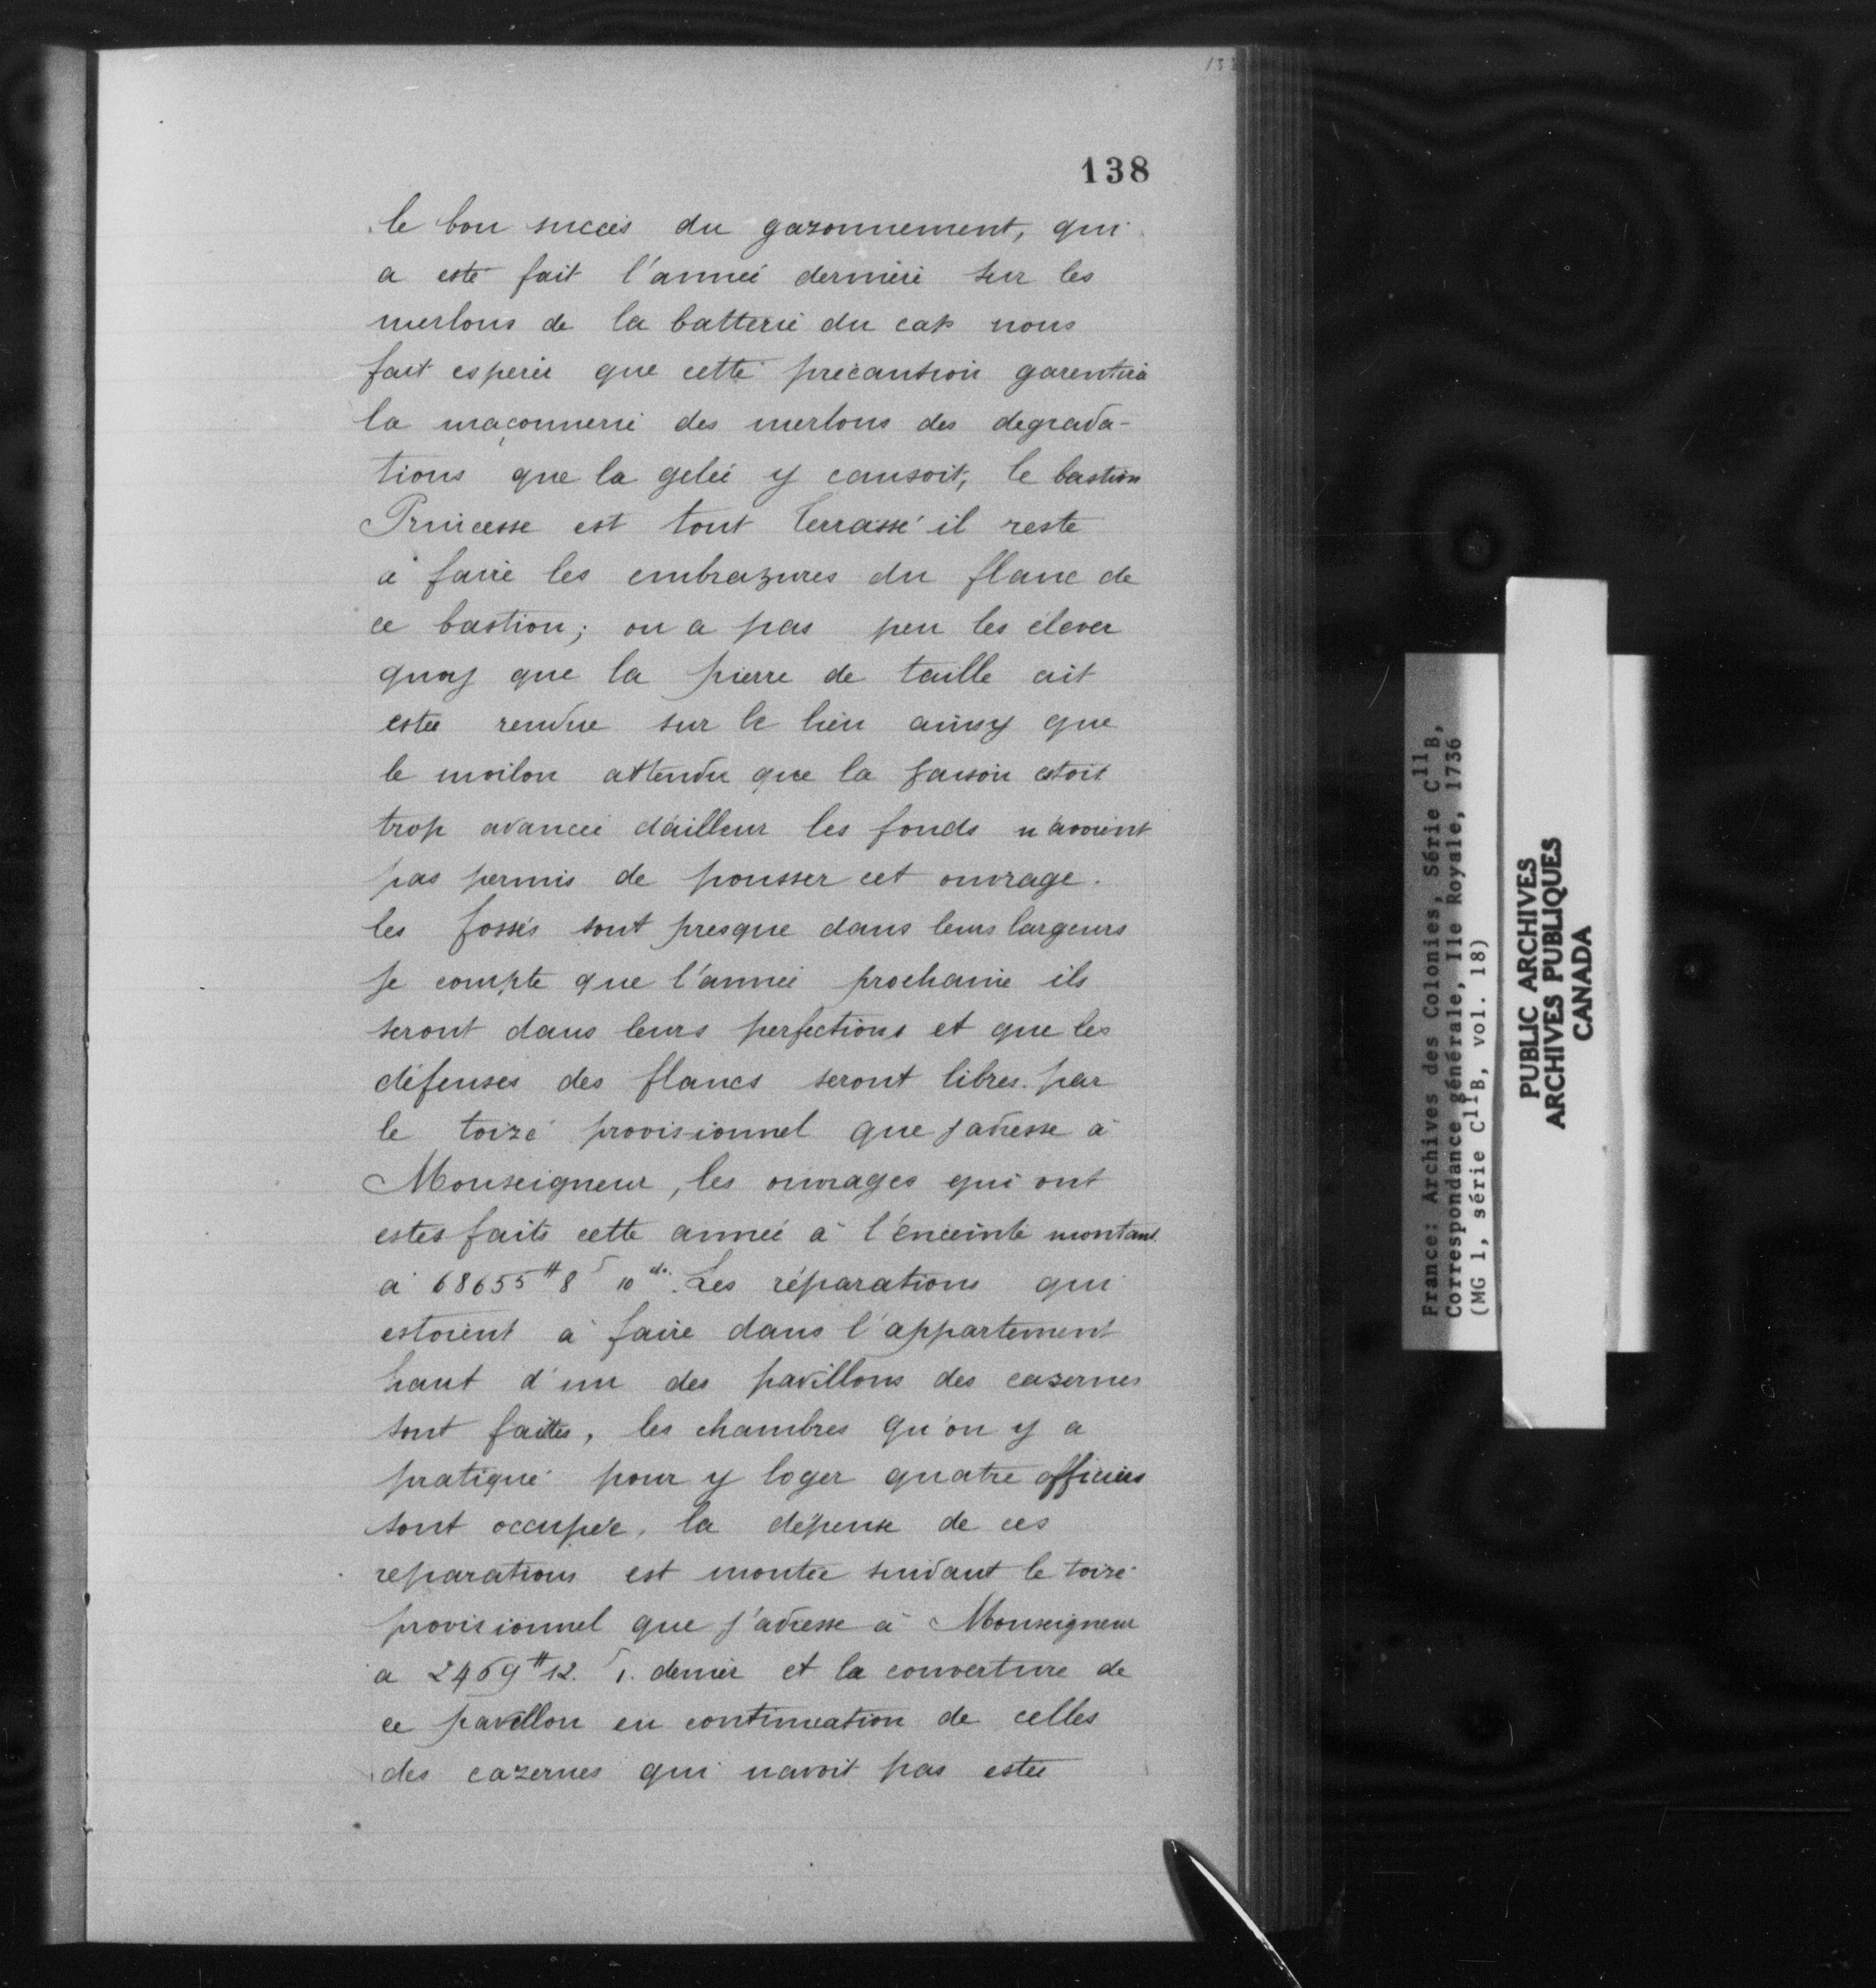 138
le bon succès du gazonnement, qui
a esté fait l'année dernière sur les
merlons de la batterie du cap nous
fait esperer que cette précaution garentira
la maçonnerie des merlons des degrada-
tions que la gelée y causoit, le bastion
Princesse est tout terrassé il reste
à faire les embrazures du flanc de
ce bastion; on a pas peu les élever
quoy que la pierre de taille ait
estée rendue sur le lieu ainsy que
le moilon attendu que la saison estoit
trop avancée d'ailleur les fonds n'avoient
pas permis de pousser cet ouvrage.
les fossés sont presque dans leurs largeurs
je compte que l'année prochaine ils
seront dans leurs perfections et que les
défenses des flancs seront libres. par
le toizé provisionnel que j'adresse à
Monseigneur, les ouvrages qui ont
estés faits cette année à l'enceinte montant
à 68655# 8 s 10 ds. Les réparations qui
estoient à faire dans l'appartement
haut d'un des pavillons des casernes
sont faittes, les chambres qu'on y a
pratiqué pour y loger quatre officiers
sont occupée, la dépense de ces
reparations est montée suivant le toizé
provisionnel que j'adresse à Monseigneur
a 2469# 12. s 1. denier et la couverture de
ce pavillon en continuation de celles
des cazernes qui navoit pas estée
France: Archives des Colonies, Série C11B,
Correspondance générale, Ile Royale, 1736
(MG 1, série C11B, vol. 18)
PUBLIC ARCHIVES
ARCHIVES PUBLIQUES
CANADA